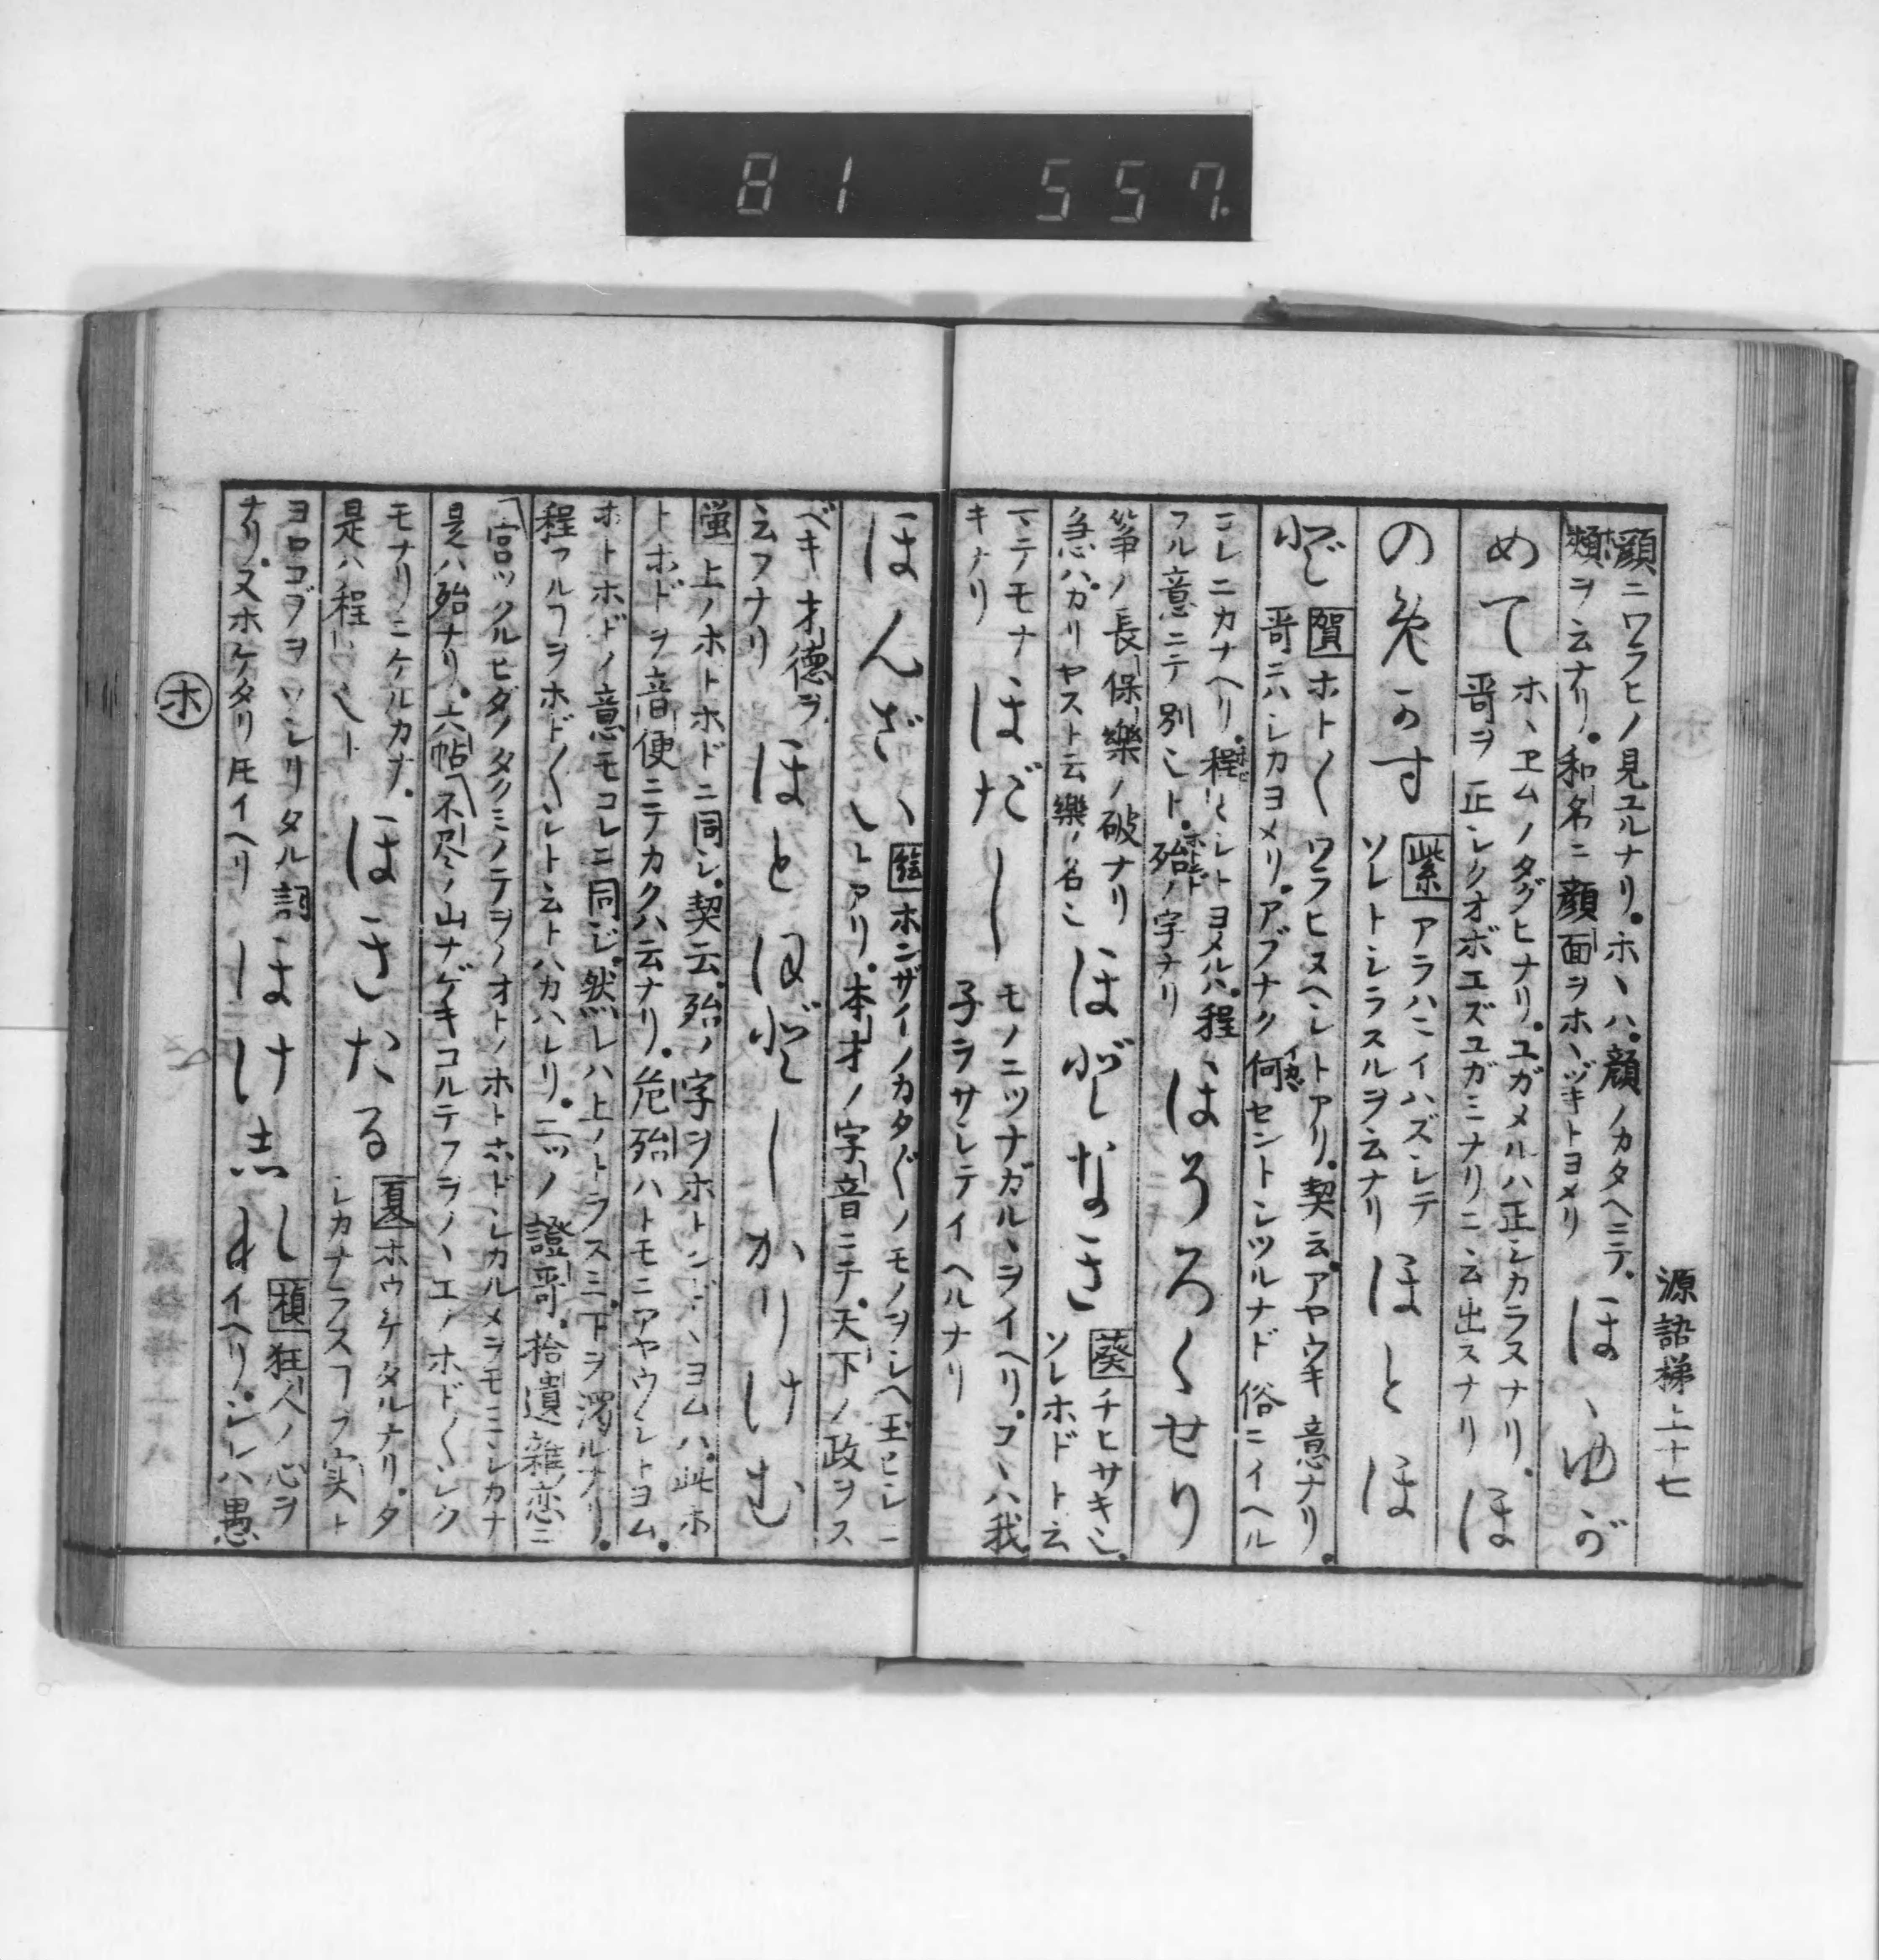 81 557.
源語梯上十七
顔ニワラヒノ見ユルナリ。ホヽハ。顔ノカタヘニテ。
類ヲ云ナリ。和名ニ顔面ヲホヽヅキトヨメリ
ほゝゆが
めて
ホヽヱムノタグヒナリ。ユガメルハ正シカラヌナリ。
哥ヲ正シクオボエズユガミナリニ云出スナリ
ほ
のめかす
紫アラハニイハズシテ
ソレトシラスルヲ云ナリ
ほとほ
どし
賀ホト〱ワラヒヌヘシトアリ。契云。アヤウキ意ナリ。
哥ニハシカヨメリ。アブナク何セントシツルナド俗ニイヘル
コレニカナヘリ。程〻シトヨメルハ。程
フル意ニテ別シト。殆ノ字ナリ
ほうろくせり
筝ノ長保樂ノ破ナリ
急ハカリヤスト云樂ノ名ニ
ほどなき
葵チヒサキシ。
ソレホドト云
マテモナ
キナリ
ほだし
モノニツナガルヽヲイヘリ。コヽハ我
子ヲサシテイヘルナリ
ほんざい
絵ホンザイノカタ〲ノモノヲシヘ玉ヒシニ
トアリ。本才ノ字音ニテ。天下ノ政ヲス
ベキ才徳ヲ
云フナリ
ほとほどしかりけむ
蛍上ノホトホドニ同シ。契云。殆ノ字ヲホトンドヽヨムハ。此ホ
トホドヲ音便ニテカクハ云ナリ。危殆ハトモニアヤウシトヨム。
ホトホドノ意モコレニ同ジ。然レハ上ノトヲスミ。下ヲ濁ルナリ。
程フルヿヲホド〱シト云トハカハレリ。二ツノ證哥。拾遺雑恋ニ
「宮ツクルヒダノタクミノテヲノオトノホトホドシカルメヲモミシカナ
是ハ殆ナリ。六帖「不尽ノ山ナゲキコルテフヲノヽエノホド〱シク
モナリニケルカナ。
是ハ程〻シト
ほきたる
夏ホウケタルナリ。タ
シカナラスヿヲ実ト
ヨロコブヲソシリタル詞
ナリ。又ホケタリトモイヘリ
ほけ志し
れ
横狂人ノ心ヲ
イヘリ。シレハ愚
ホ